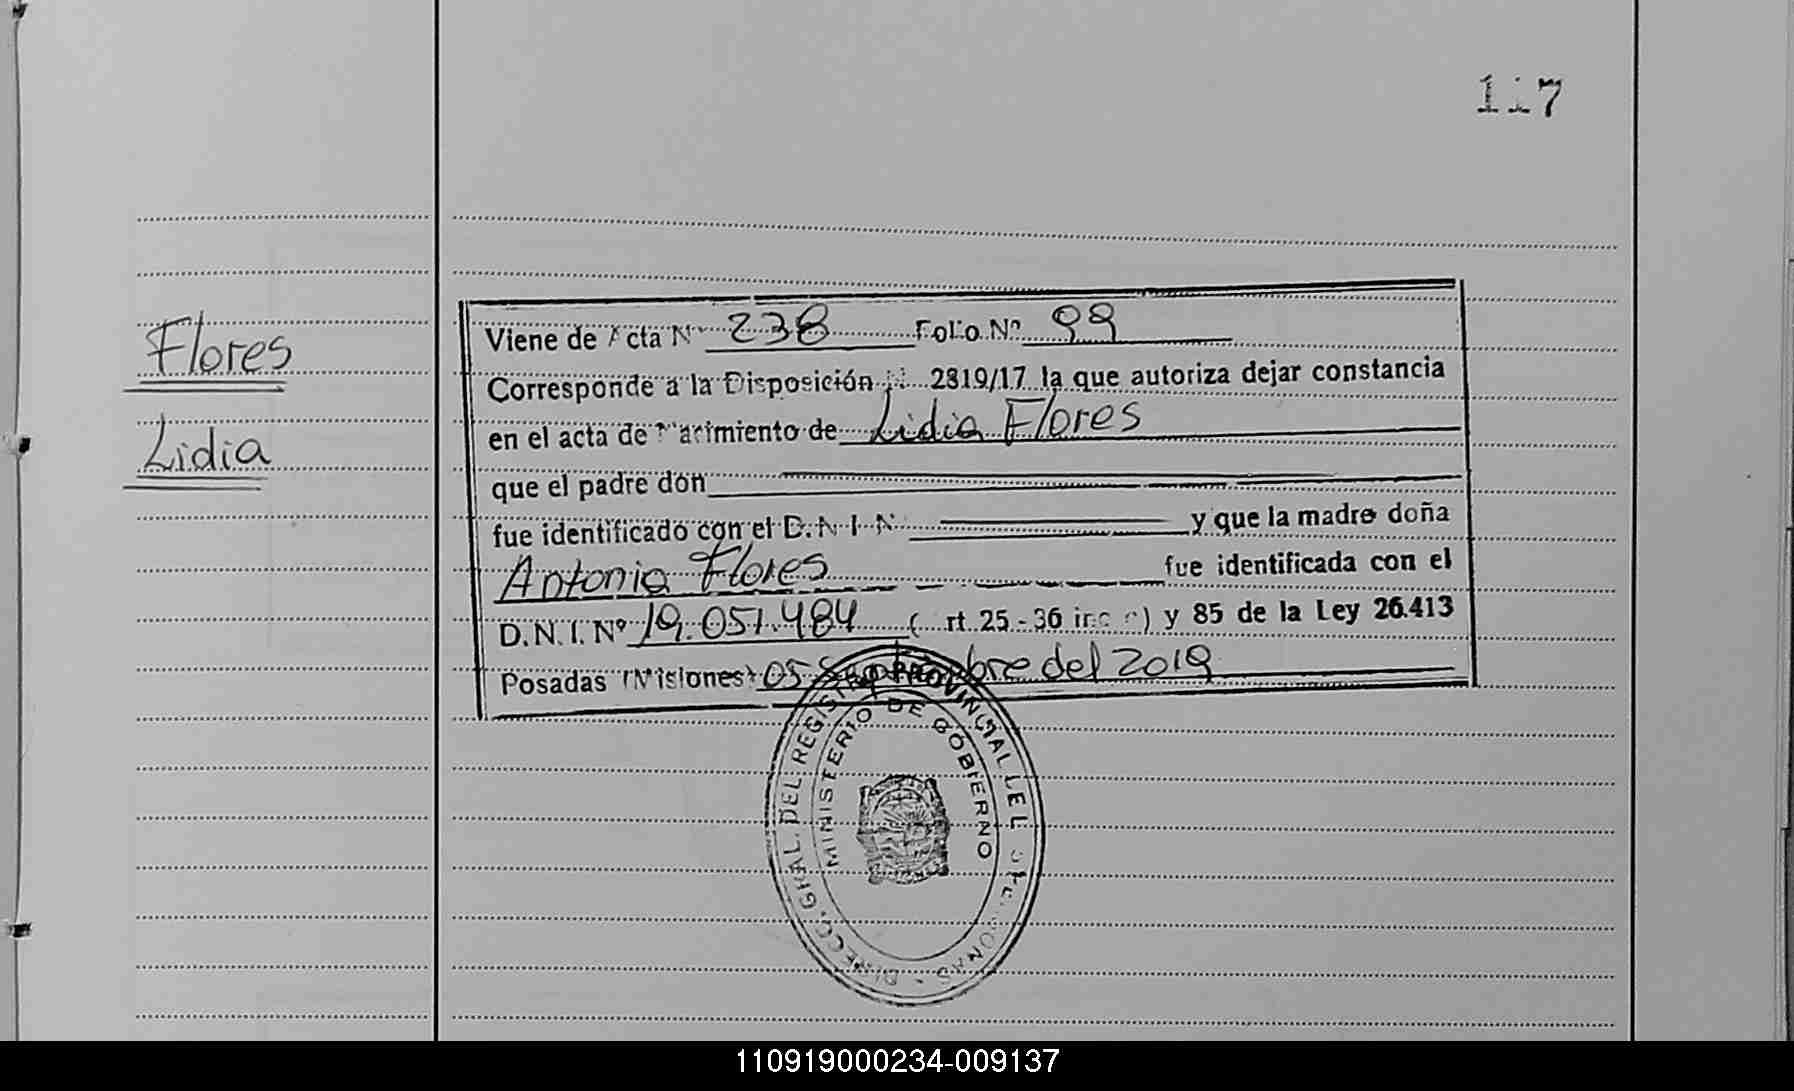 117
Flores
Lidia
Viene de Acta Nº 238 Folio Nº 99
Corresponde a la Disposición Nº 2819/17 la que autoriza dejar constancia
en el acta de Nacimiento de Lidia Flores
que el padre don
fue identificado con el D.N.I. Nº y que la madre doña
Antonia Flores fue identificada con el
D.N.I. Nº 19.051.484 ( rt. 25 - 36 inc c) y 85 de la Ley 26.413
Posadas (Misiones) 05 Septiembre del 2019
DIRECC. GRAL. DEL REGISTRO PROVINCIAL DE
MINISTERIO DE GOBIERNO
110919000234-009137